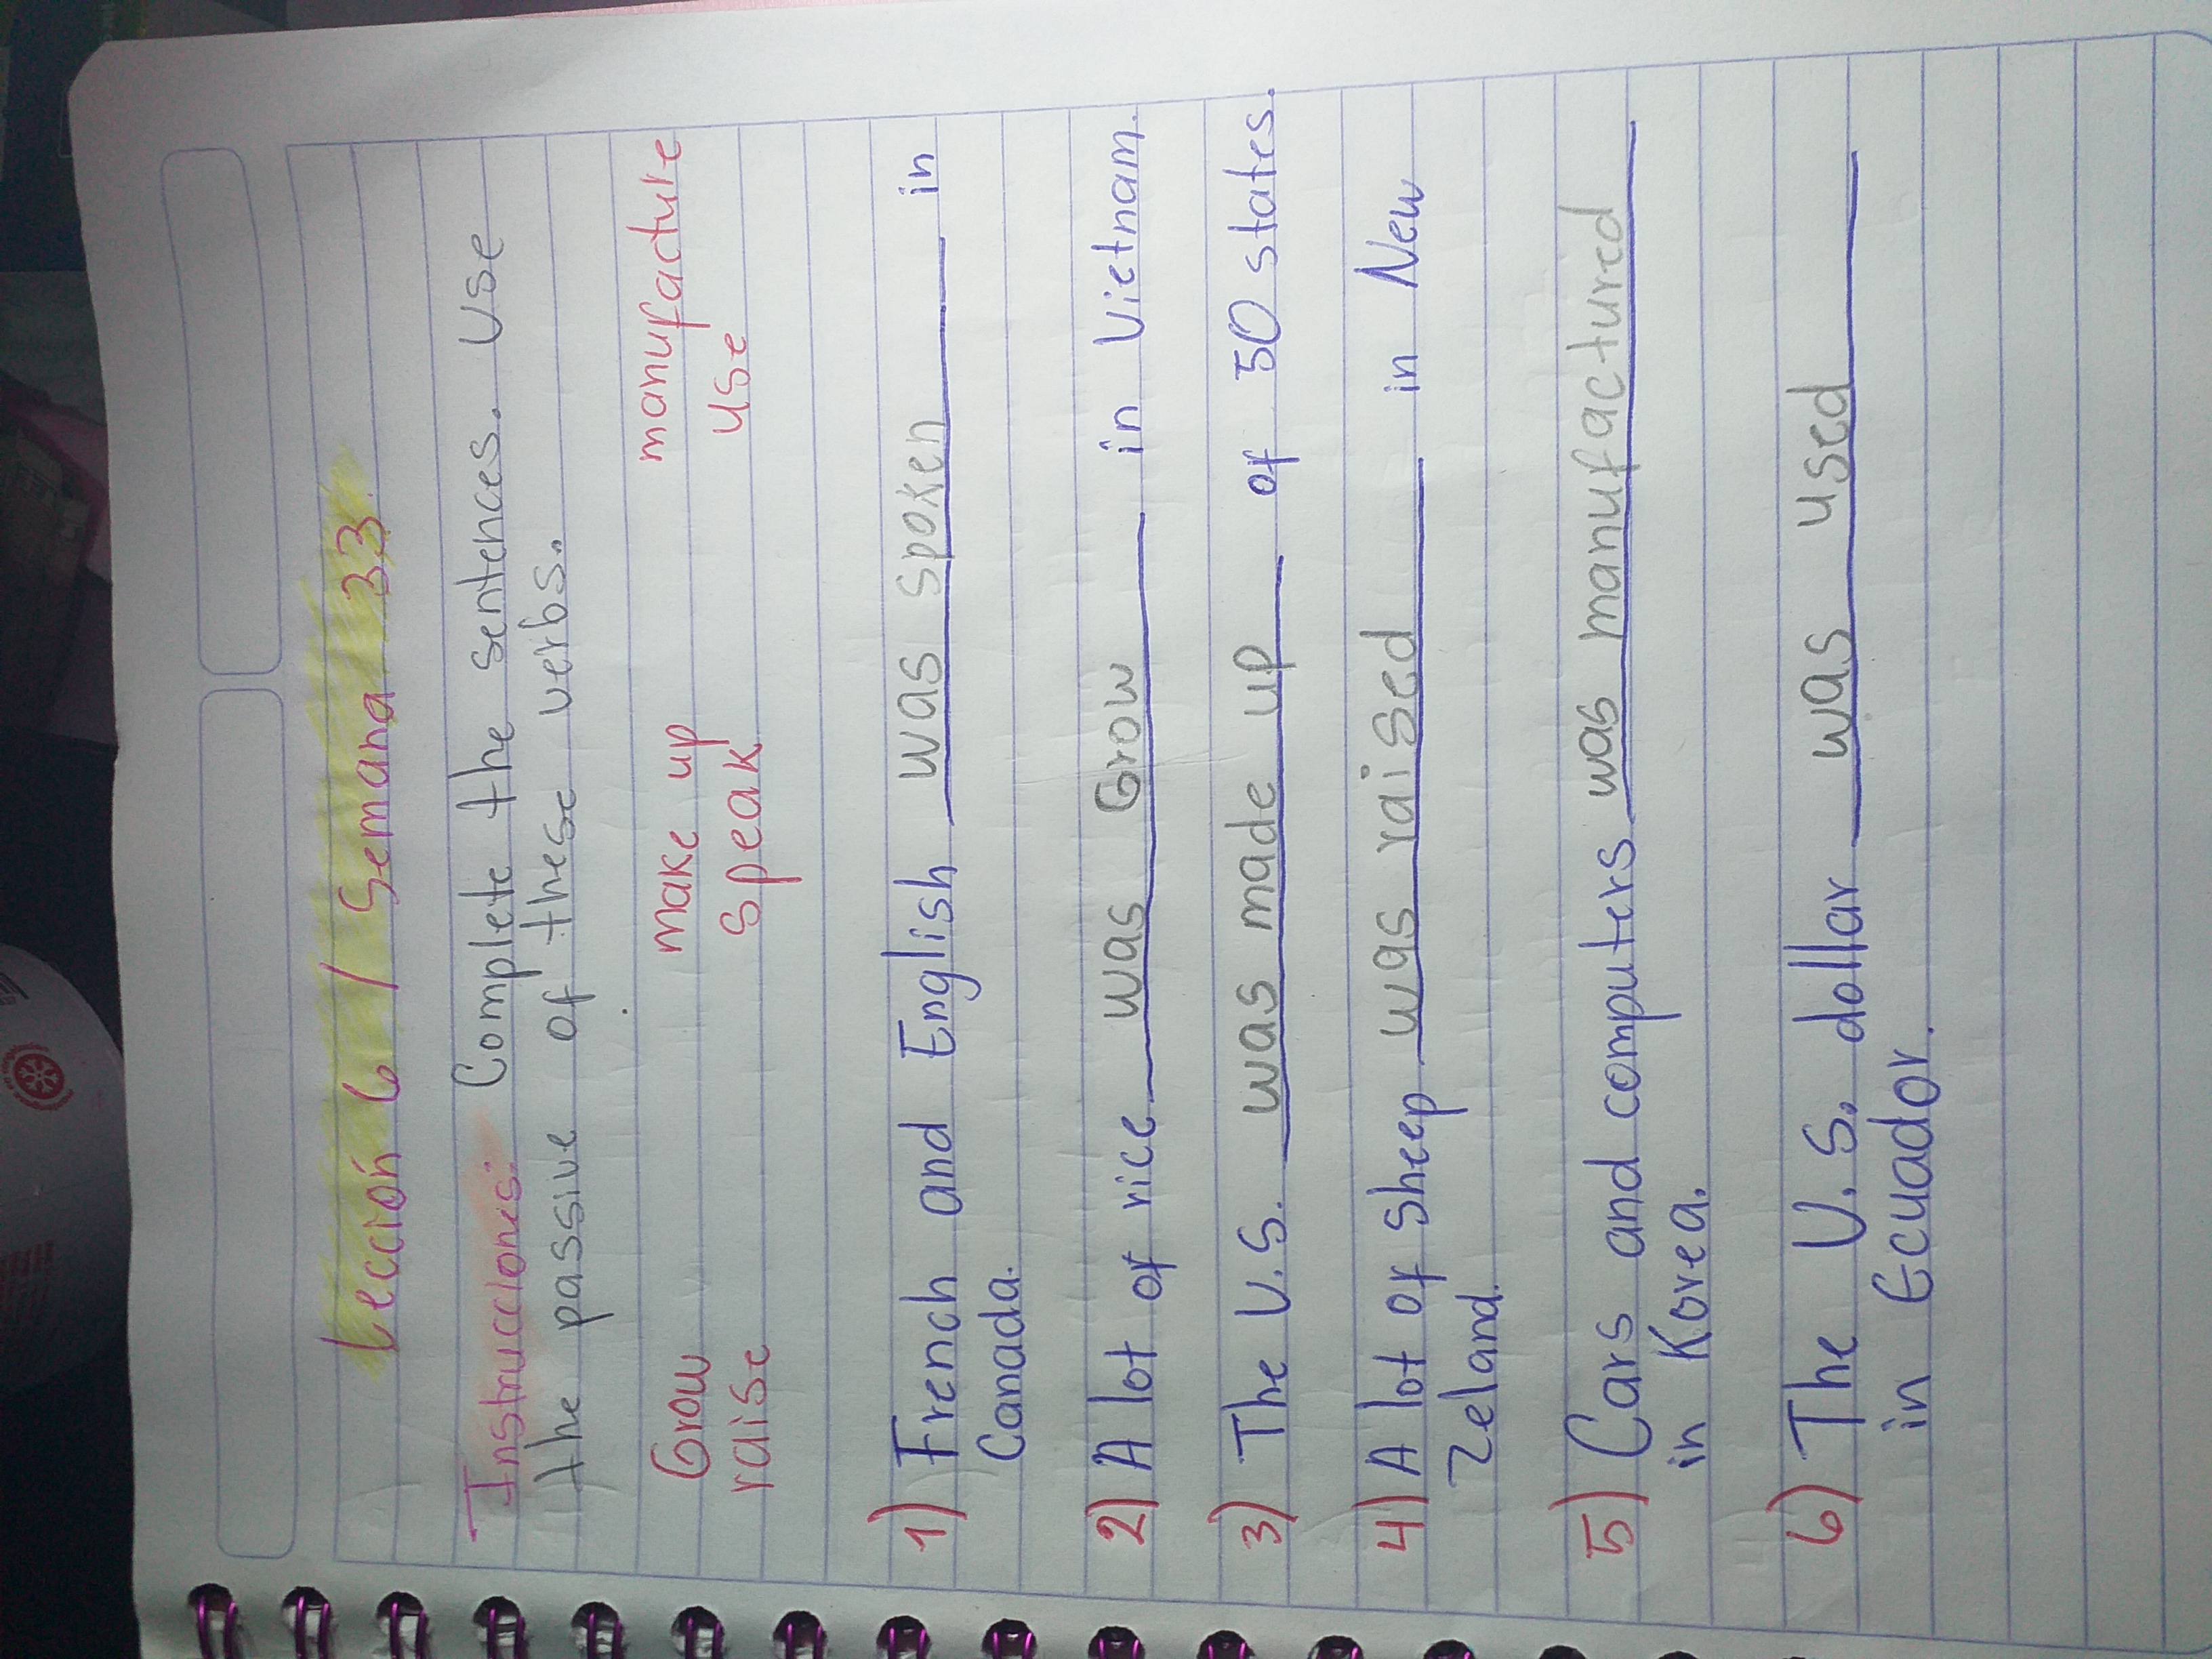 Lección 6 / Semana 33
Instrucciones: Complete the sentences. Use
the passive of these verbs.
Grow make up manufacture
raise speak use
1) French and English was spoken in
Canada.
2) A lot of rice was Grow in Vietnam.
3) The U.S. was made up of 50 states.
4) A lot of sheep was raised in New
Zeland.
5) Cars and computers was manufactured
in Korea.
6) The U.S. dollar was used
in Ecuador.